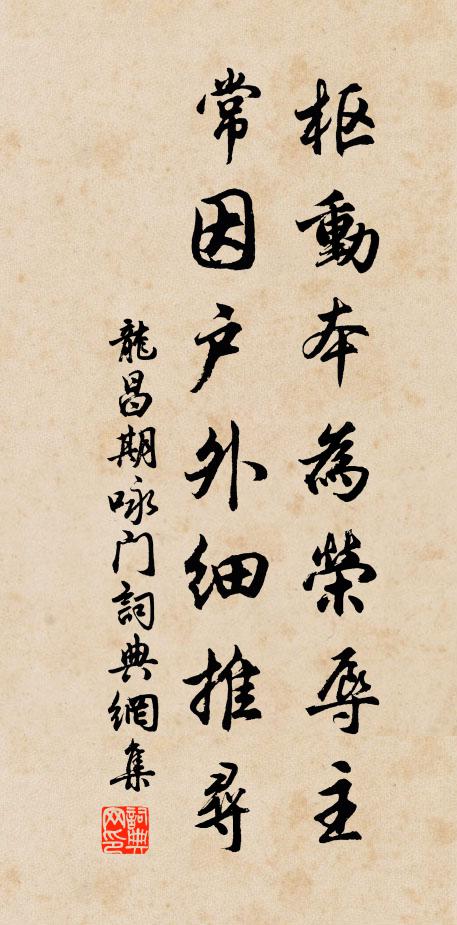 枢動本為榮辱主
常因戶外細推尋
龍昌期咏門詞典網集
詞典网印